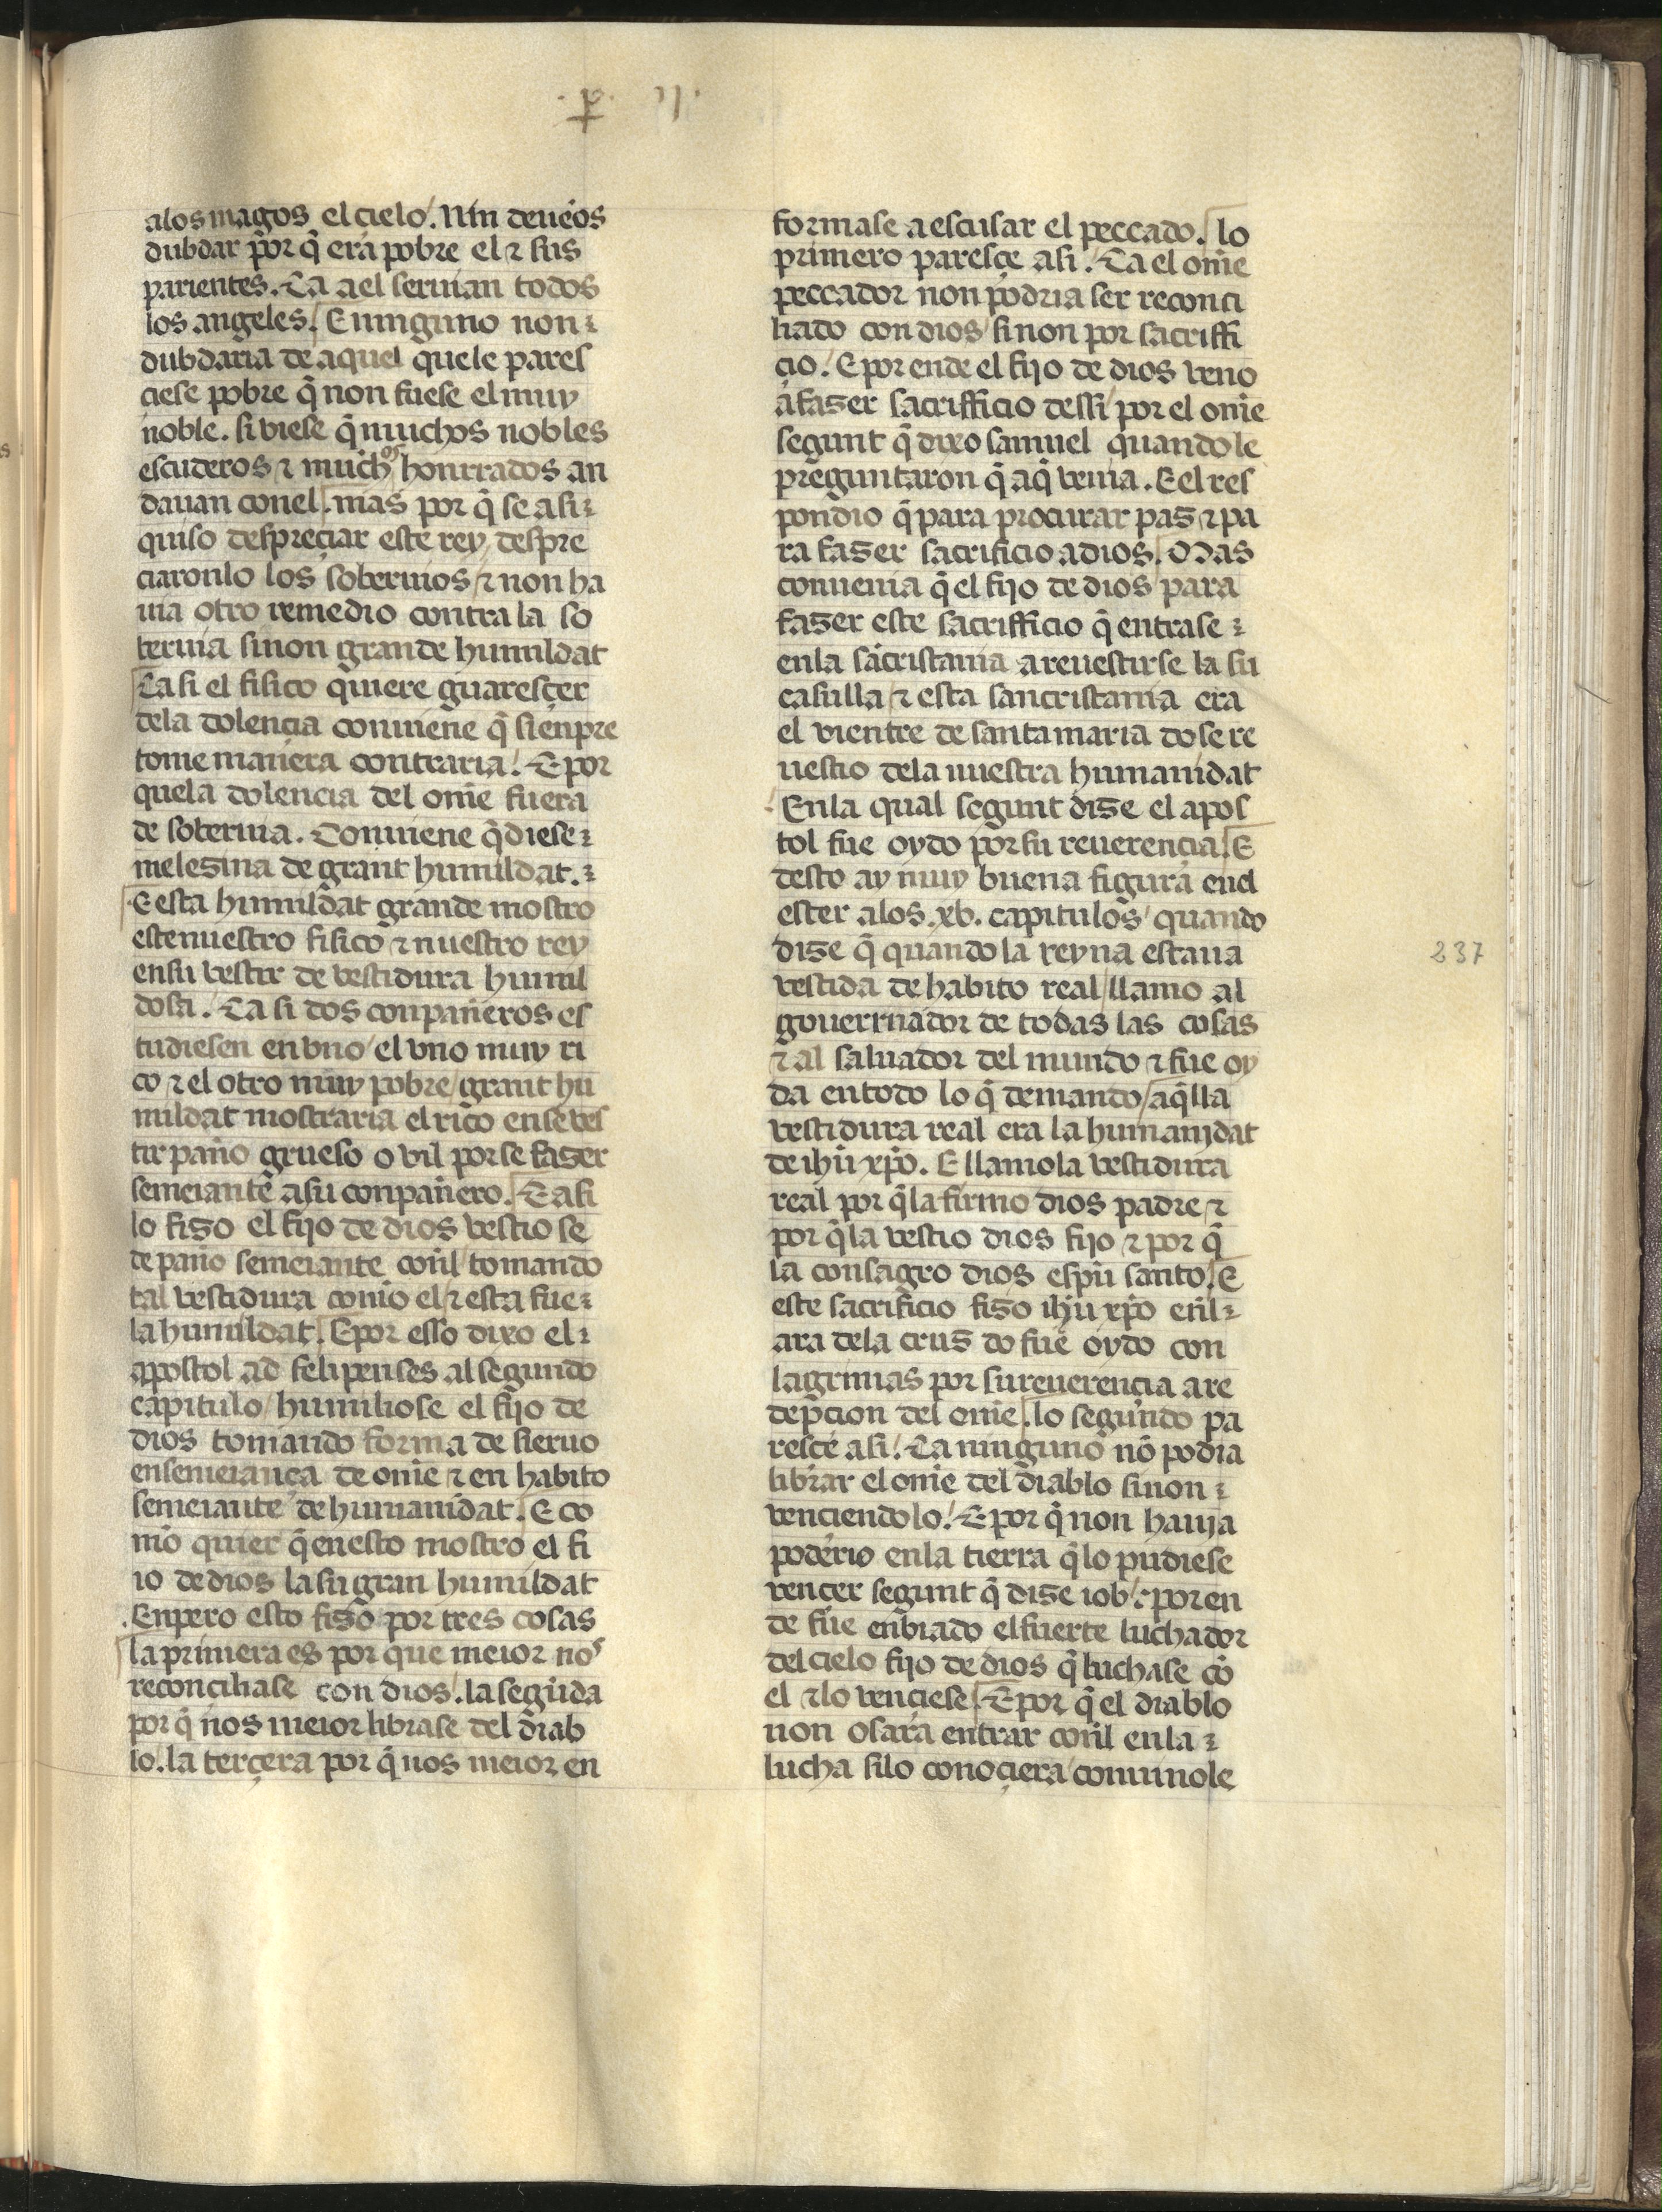 alos magos el çielo. Nin deuẽos
dubdar por q̃ era pobre el ⁊ sus
parientes. Ca a el seruian todos
los angeles. E ninguno non
dubdaria de aquel que le pares
ciese pobre q̃ non fuese el muy
noble. si viese q̃ muchos nobles
escuderos ⁊ muchos honrrados an
dauan conel. mas por q̃ se asi
quiso despreçiar este rey, despre
ciaronlo los soberuios ⁊ non ha
uia otro remedio contra la so
beruia sinon grande humildat
Ca si el fisico quiere guaresçer
dela dolencia conuiene q̃ sienpre
tome manera contraria. E por
quela dolencia del om̃e fuera
de soberuia. Conuiene q̃ diese
melesina de grant humildat.
E esta humildat grande mostro
este nuestro fisico ⁊ nuestro rey
ensu vestir de vestidura humil
dosa. Ca si dos conpañeros es
tudiesen en vno / el vno muy ri
co ⁊ el otro muy pobre / grant hu
mildat mostraria el rico ense ves
tir paño grueso o vil por se faser
semeiante asu conpañero. E asi
lo fiso el fijo de dios vestio se
de paño semeiante conl̃ / tomando
tal vestidura com̃o el ⁊ esta fue
la humildat. E por esso dixo el
apostol ad felipenses al segundo
capitulo / humiliose el fijo de
dios tomando forma de sieruo
en semeiança de om̃e ⁊ en habito
semeiante de humanidat. E co
mo quier q̃ enesto mostro el fi
io de dios la su gran humildat
Enpero esto fiso por tres cosas
la primera es por que meior nos
reconçiliase con dios. la segũda
por q̃ nos meior librase del diab
lo. la terçera por q̃ nos meior en
formase a escusar el peccado. lo
primero paresçe asi. Ca el om̃e
peccador non podria ser reconci
liado con dios / sinon por sacriffi
cio. E por ende el fijo de dios veno
a faser sacrifficio dessi / por el om̃e
segunt q̃ dixo samuel quando le
preguntaron q̃ aq̃ venia. E el res
pondio q̃ para procurar pas ⁊ pa
ra faser sacrificio a dios. Mas
conuenia q̃ el fijo de dios / para
faser este sacrifficio q̃ entrase
enla sacristania a reuestirse la su
casulla ⁊ esta sancristania era
el vientre de santa maria do se re
uestio dela nuestra humanidat
Enla qual segunt dise el apos
tol fue oydo por su reuerençia. E
desto ay muy buena figura enel
ester alos .xv. capitulos / quando
dise q̃ quando la reyna estaua
vestida de habito real / llamo al
gouerrnador de todas las cosas
⁊ al saluador del mundo ⁊ fue oy
da en todo lo q̃ demando / aq̃lla
vestidura real era la humanjdat
de ihũ xp̃o. E llamola vestidura
real por q̃ la firmo dios padre ⁊
por q̃ la vestio dios fijo ⁊ por q̃
la consagro dios esp̃u santo. E
este sacrificio fiso ihũ xp̃o enl̃
ara dela crus do fue oydo con
lagrimas por su reuerencia a re
dep̃cion del om̃e. lo segundo pa
resce asi. Ca ninguno nõ podia
librar el om̃e del diablo sinon
venciendolo. E por q̃ non hauja
poderio enla tierra q̃ lo pudiese
vençer segunt q̃ dise iob. por en
de fue enbiado el fuerte luchador
del cielo fijo de dios q̃ luchase cõ
el ⁊ lo vençiese. E por q̃ el diablo
non osara entrar conl̃ enla
lucha silo conoçiera / conuinole
237